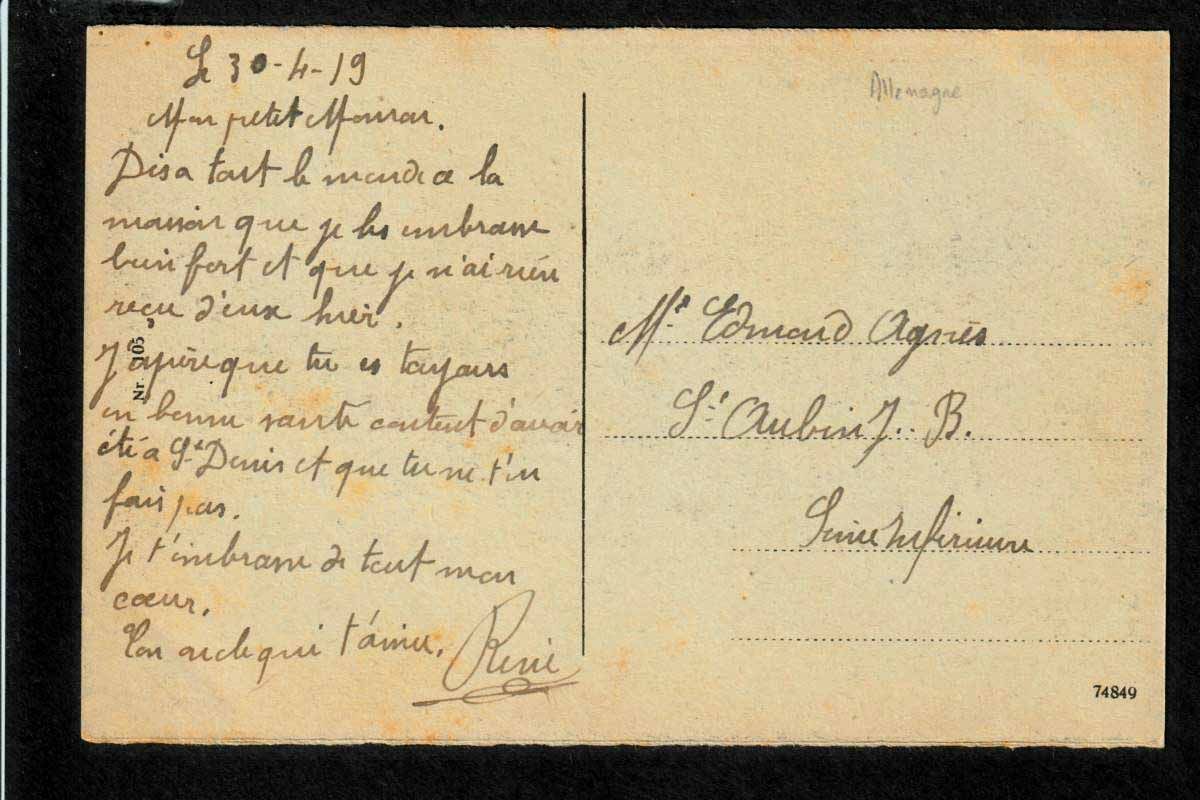 Le 30-4-19
Mon petit
Dis a tout le monde a la
maison que je les embrasse
bien fort et que je n'ai rien
reçu d'eux hier.
J'éspère que tu es toujours
en bonne santé content d'avoir
été a St Denis et que tu ne t'en
fais pas.
Je t'embrasse de tout mon
cœur.
Ton oncle qui t'aime. René
Nr. 105
Allemagne
Mr Edmond Agnès
St Aubin J. B.
Seine Inférieure
74849